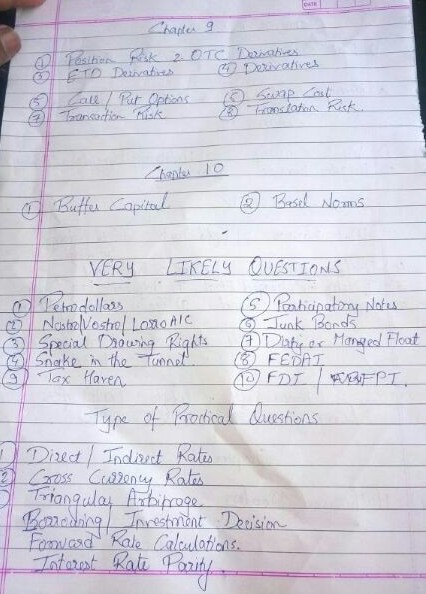 DATE
Chapter 9
① Position Risk 2 OTC Derivatives
③ ETD Derivatives ④ Derivatives
⑤ Call / Put Options ⑥ Swap Cost
⑦ Transaction Risk ⑧ Translation Risk.
Chapter 10
① Buffer Capital ② Basel Norms
VERY LIKELY QUESTIONS
① Petrodollars ⑤ Participatory Notes
② Nostro/Vostro/ Lorro A/C ⑥ Junk Bonds
③ Special Drawing Rights ⑦ Dirty or Manged Float
④ Snake in the Tunnel ⑧ FEDAI
⑨ Tax Haven ⑩ FDI / FPI.
Type of Practical Questions
Direct / Indirect Rates
Cross Currency Rates
Triangular Arbitrage
Borrowing / Investment Decision
Forward Rate Calculations.
Interest Rate Parity.